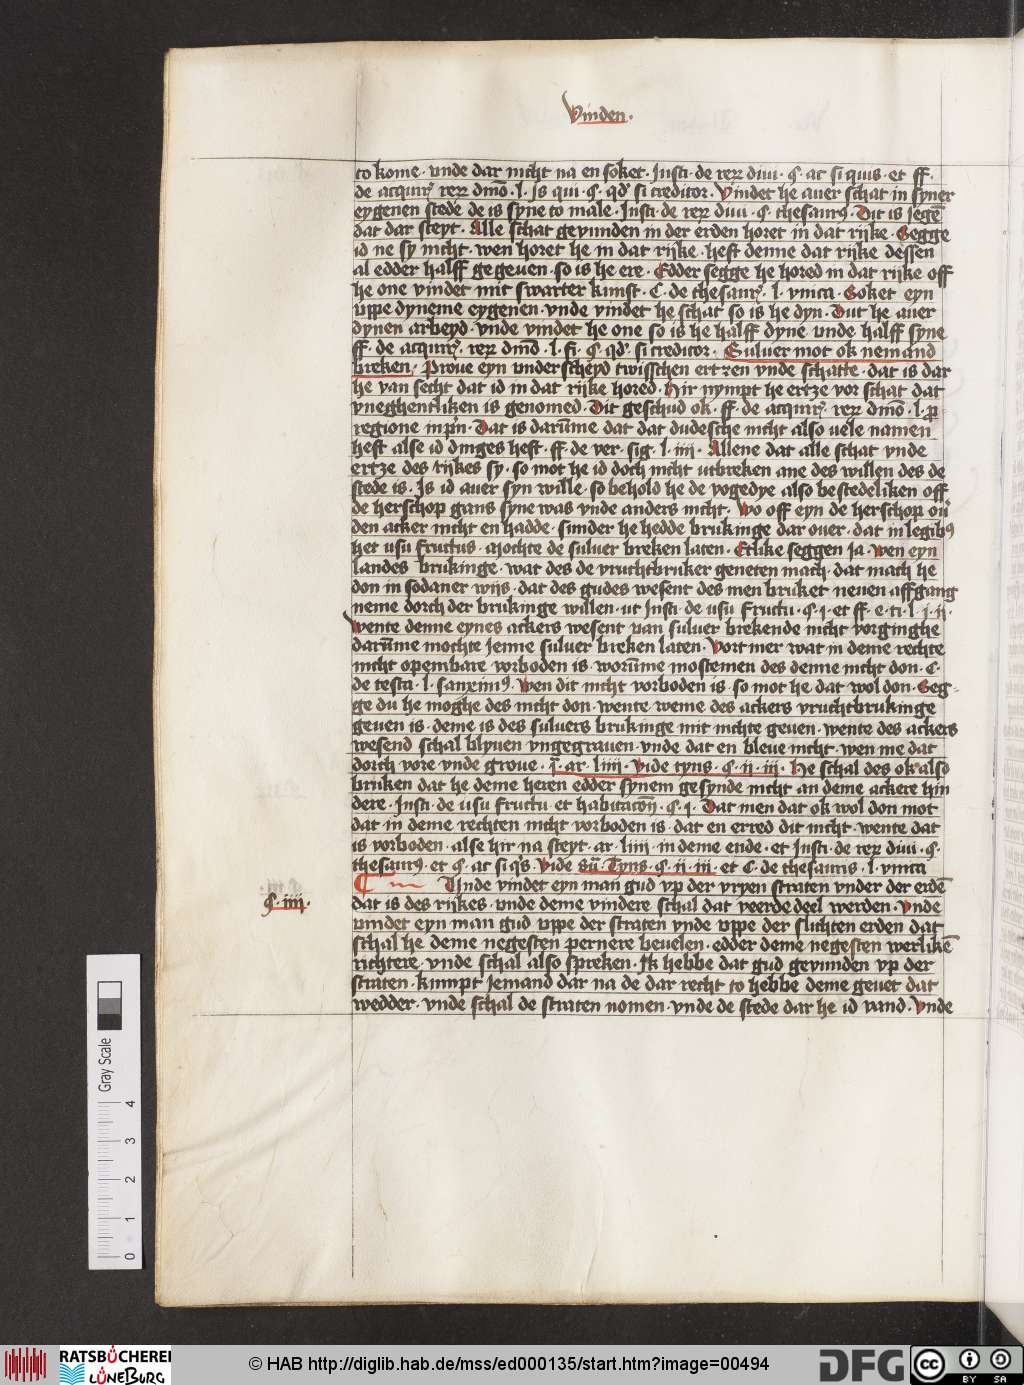 Vinden.
to kome. vnde dar nicht na en soket. Insti. de reꝝ diui. §. ar si quis. et ff.
de acquir͛. reꝝ dm̄o. l. Is qui. §. qd͛ si creditor. Vindet he auer schat in syner
eygenen stede de is syne to male. Insti. de reꝝ diui. §. thesaurꝰ. Dit is jegē
dat dar steyt. Alle schat gevunden in der erden horet in dat rijke. Segge
id ne sy nicht. wen horet he in dat rijke. heft denne dat rijke dessen
al edder halff gegeuen. so is he ere. Edder segge he hored in dat rijke off
he one vindet mit swarter kunst. C. de thesaur͛. l. vnica. Soket eyn
vppe dyneme eygenen. vnde vindet he schat so is he dyn. Dut he auer
dynen arbeyd. vnde vindet he one so is he halff dyne vnde halff syne
ff. de acquir͛. reꝝ. dm̄o. l. si. §. qd͛. si creditor. Suluer mot ok nemand
breken. Proue eyn vnderscheyd twisschen ertzen vnde schatte. dat is dar
he van secht dat id in dat rijke hored. Hir nympt he ertze vor schat dat
vneghentliken is genomed. Dit geschud ok. ff. de acquir͛. reꝝ dm̄o. l. ꝑ
regione in pͥn. Dat is darūme dat dat dudesche nicht also uele namen
heft alse id dinges heft. ff. de ver. sig. l. iiii. Allene dat alle schat vnde
ertze des rijkes sy. so mot he id doch nicht utbreken ane des willen des de
stede is. Is id auer syn wille. so behold he de vogedye also bestedeliken off
de herschop gans syne was vnde anders nicht. Wo off eyn de herschop ou͛
den acker nicht en hadde. sunder he hedde brukinge dar ouer. dat in legibꝰ
het usu fructus. mochte de suluer breken laten. Etlike seggen ja. wen eyn
landes brukinge. wat des de vruchtbruker geneten mach. dat mach he
don in sodaner wijs. dat des gudes wesent des men bruket neuen affgang
neme dorch der brukinge willen. ut Insti. de usu fructu. §. i. et ff. e. ti. l. i. ii.
Wente denne eynes ackers wesent van suluer brekende nicht vorginghe
darūme mochte jenne suluer breken laten. Vort mer wat in deme rechte
nicht openbare vorboden is. worūme mostemen des denne nicht don. C.
de testa. l. sanximꝰ. Wen dit nicht vorboden is. so mot he dat wol don. Seg-
ge du he moghe des nicht don. wente weme des ackers vruchtbrukinge
geuen is. deme is des suluers brukinge mit nichte geuen. wente des ackers
wesend schal blyuen vngegrauen. vnde dat en bleue nicht. wen me dat
dorch vore vnde groue. ar. liiii. Vide tyns. §. ii. iii. He schal des ok also
bruken dat he deme heren edder synem gesynde nicht an deme ackere hin
dere. Insti. de usu fructu et habitacōn. §. i. Dat men dat ok wol don mot
dat in deme rechten nicht vorboden is. dat en erred dit nicht. wente dat
is vorboden. alse hir na steyt. ar. liiii. in deme ende. et Insti. de reꝝ diui. §.
thesaurꝰ. et §. ar si q͛s. Vide sū. Tyns. §. ii. iii. et C. de thesauris. l. vnica
Unde vindet eyn man gud vp der vryen straten vnder der erdē
§. iiii.
dat is des rijkes. vnde deme vindere schal dat veerde deel werden. Vnde
vindet eyn man gud vppe der straten vnde vppe der slichten erden dat
schal he deme negesten pernere beuelen. edder deme negesten werlikē
richtere. vnde schal also spreken. Ik hebbe dat gud gevunden vp der
straten. kumpt jemand dar na de dar recht to hebbe deme geuet dat
wedder. vnde schal de straten nomen. vnde de stede dar he id vand. Vnde
Gray Scale
0 1 2 3 4
RATSBÜCHEREI
LÜNEBURG
© HAB http://diglib.hab.de/mss/ed000135/start.htm?image=00494
DFG
cc BY SA